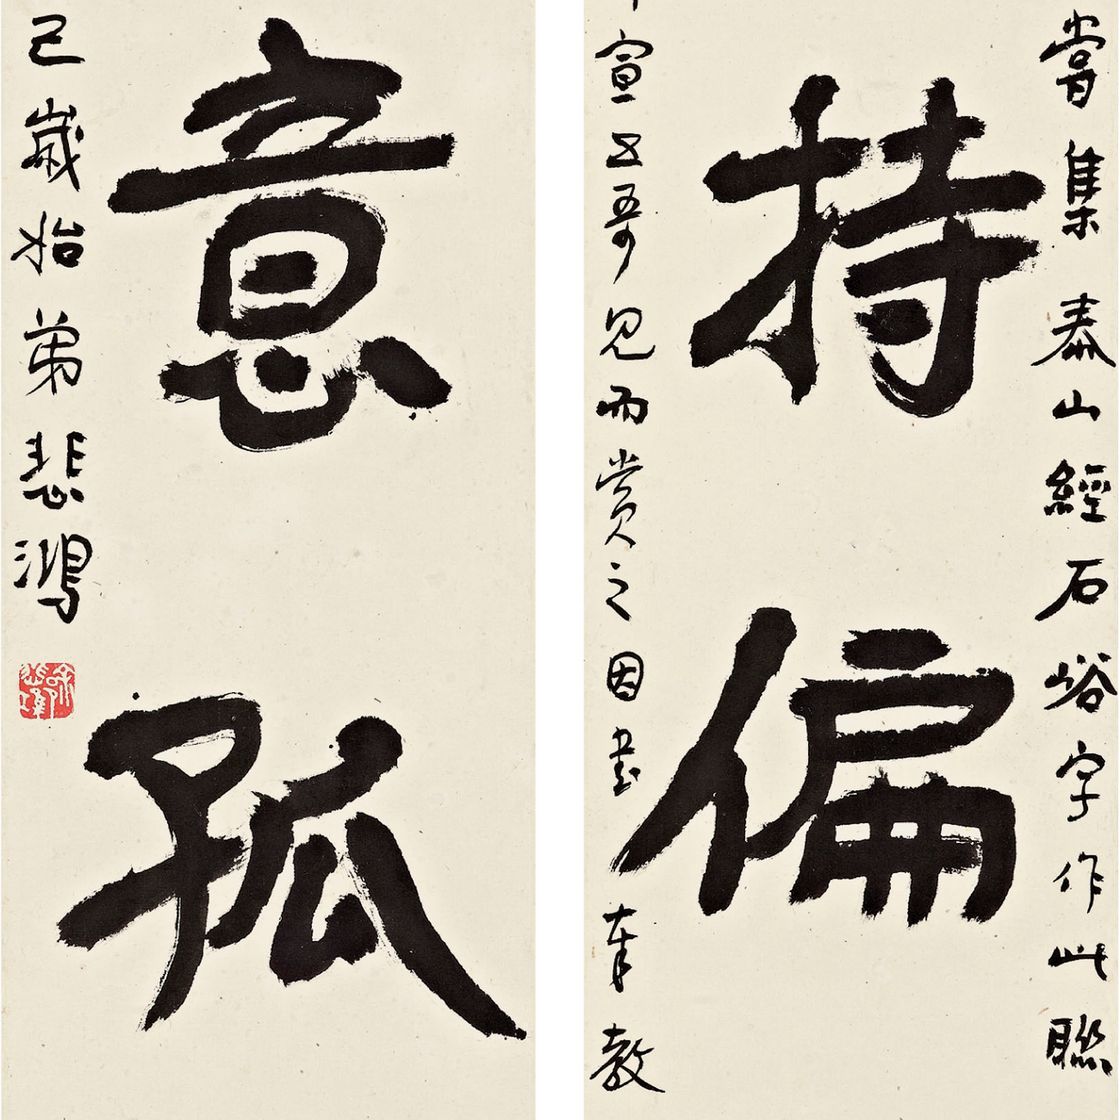 嘗集泰山經石峪字作此聯
持偏
宣五哥見而賞之因書奉教
意孤
巳歲始弟悲鴻